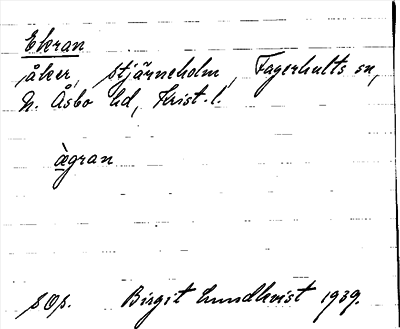 Ekran
åker, Stjärneholm, Fagerhults sn,
N. Åsbo hd, Krist. l.
àgran
sOp. Birgit Lundkvist 1939.